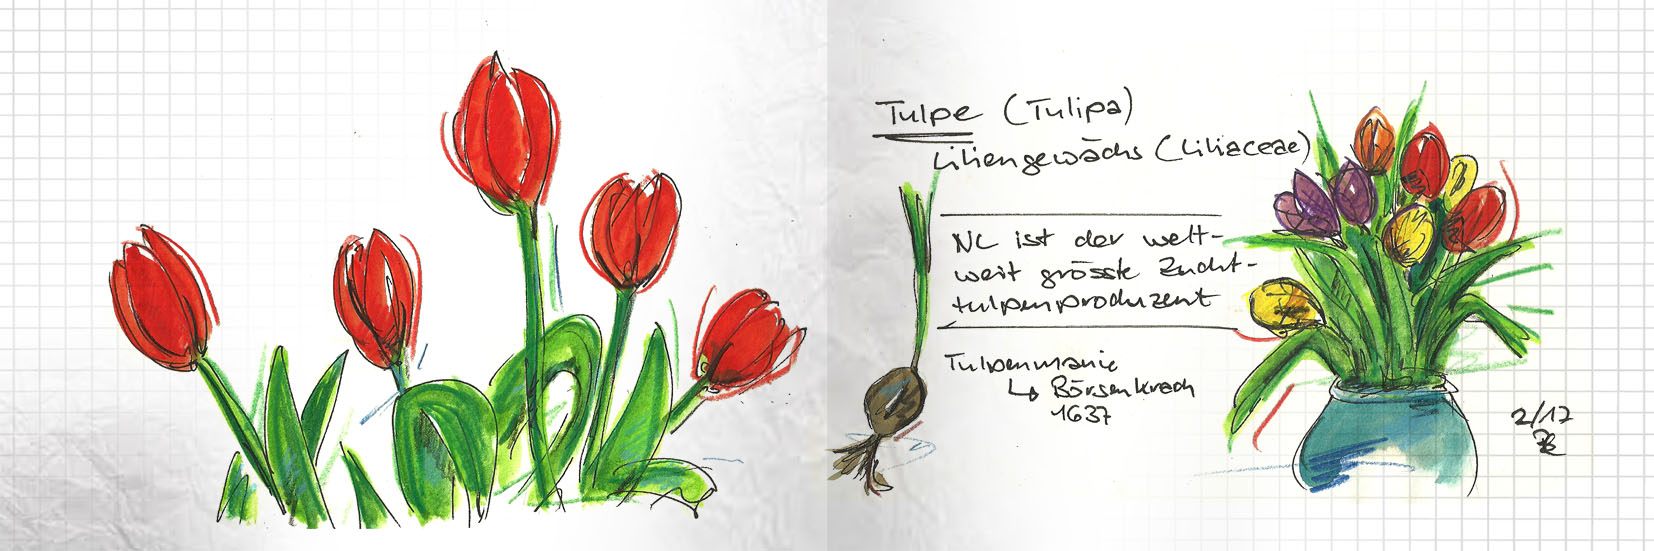 Tulpe (Tulipa)
Liliengewächs (Liliaceae)
NL ist der welt-
weit grösste Zucht-
tulpenproduzent
Tulpenmanie
↳ Börsenkrach
1637
2/17